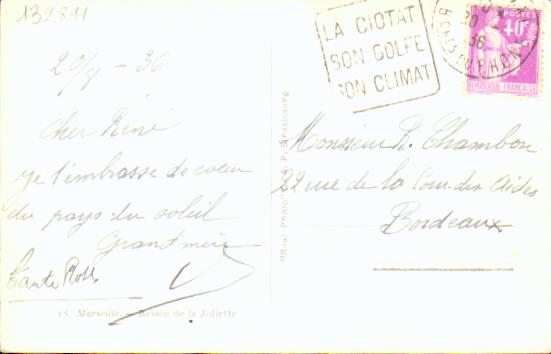 132811
LA CIOTAT
SON GOLFE
SON CLIMAT
POSTES
40c
REPUBLIQUE FRANCAISE
36
BCHES DU RHONE
20/8 - 36
Cher René
Je t'embrasse de coeur
du pays du soleil
Grandmère
Tante Rose
Monsieur R. Chambon
22 rue de la Cour des Aides
Bordeaux
"Real-Photo" P. Strasbourg
18 Marseille. - Bassin de la Joliette